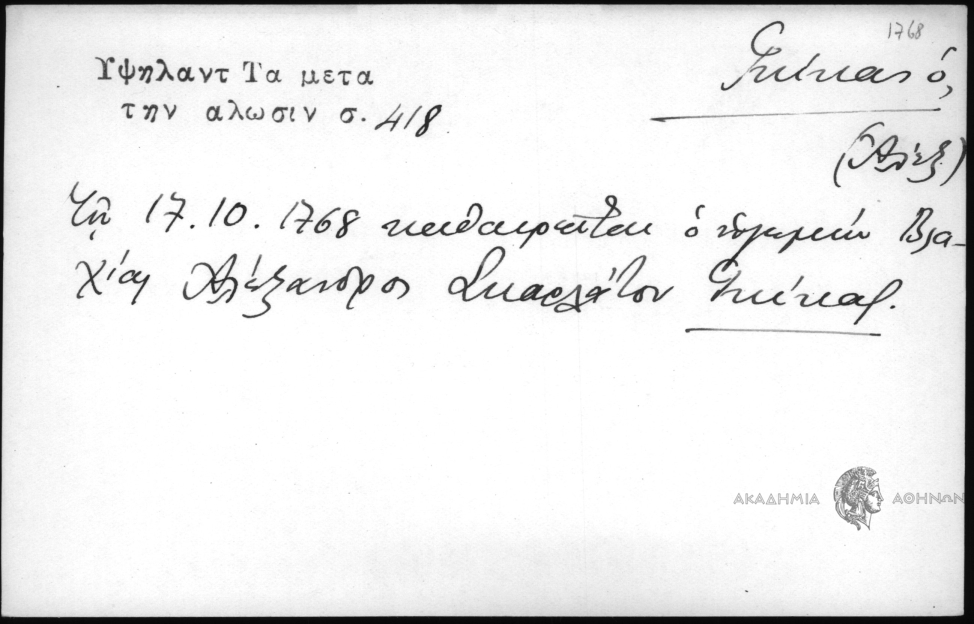 1768
Υψηλαντ Τα μετα
την αλωσιν σ. 418
Γκίκας ὁ,
(Ἀλέξ.)
Τῇ 17.10.1768 καθαιρεῖται ὁ ἡγεμὼν Βλα-
χίας Ἀλέξανδρος Σκαρλάτου Γκίκας.
ΑΚΑΔΗΜΙΑ ΑΘΗΝΩΝ